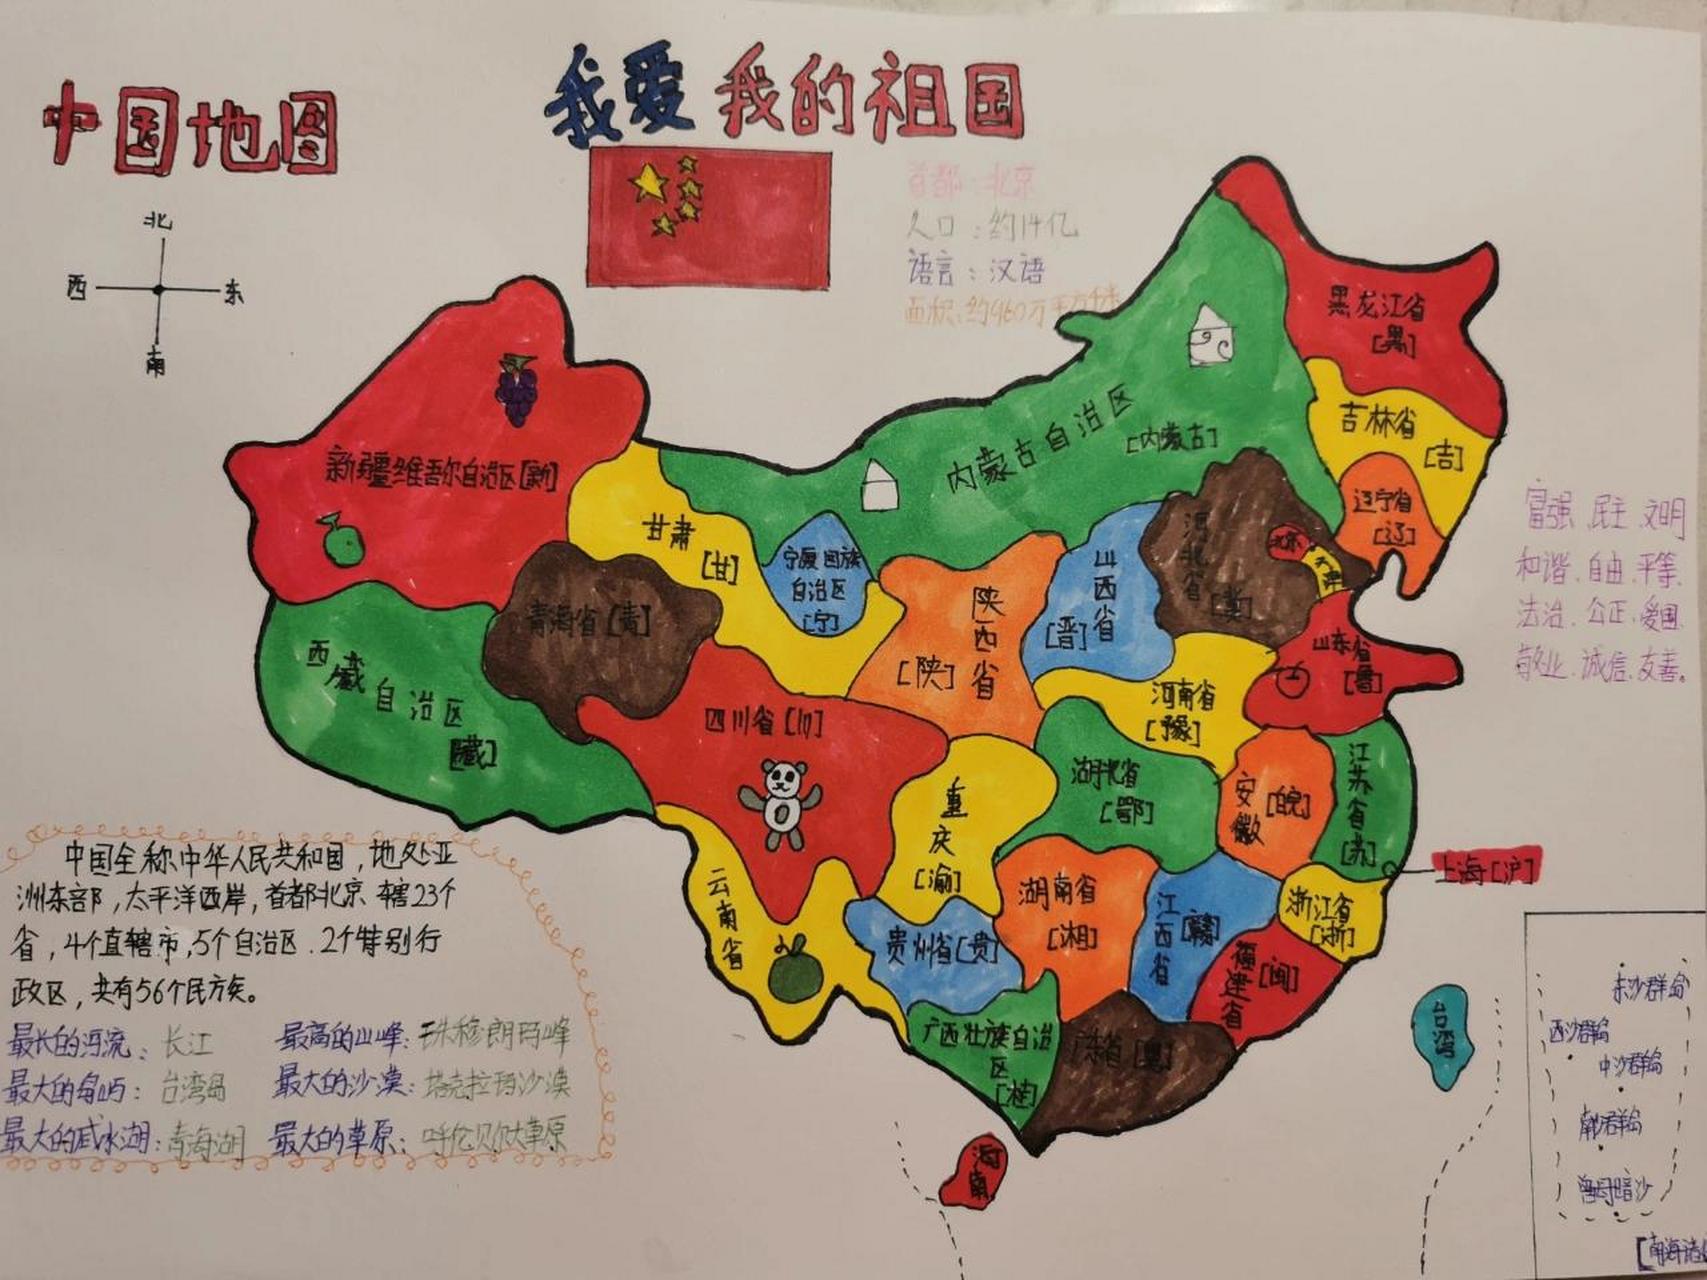 中国地图
我爱我的祖国
北
西
东
南
首都：北京
人口：约14亿
语言：汉语
面积：约960万平方千米
黑龙江省
[黑]
吉林省
[吉]
辽宁省
[辽]
内蒙古自治区
[内蒙古]
新疆维吾尔自治区[新]
甘肃
[甘]
宁夏回族
自治区
[宁]
青海省[青]
西藏自治区
[藏]
陕西省
[陕]
山西省
[晋]
河北省
[冀]
北京
天津
山东省
[鲁]
河南省
[豫]
四川省[川]
重庆
[渝]
湖北省
[鄂]
安徽[皖]
江苏省
[苏]
上海[沪]
云南省
贵州省[贵]
湖南省
[湘]
江西省[赣]
浙江省
[浙]
福建省[闽]
广西壮族自治
区
[桂]
广东省[粤]
海南
台湾
富强.民主.文明
和谐.自由.平等.
法治.公正.爱国.
敬业.诚信.友善。
中国全称中华人民共和国，地处亚
洲东部，太平洋西岸，首都北京、辖23个
省，4个直辖市，5个自治区.2个特别行
政区，共有56个民族。
最长的河流：长江
最高的山峰：珠穆朗玛峰
最大的岛屿：台湾岛
最大的沙漠：塔克拉玛沙漠
最大的咸水湖：青海湖
最大的草原：呼伦贝尔大草原
东沙群岛
西沙群岛
中沙群岛
南沙群岛
曾母暗沙
[南海诸